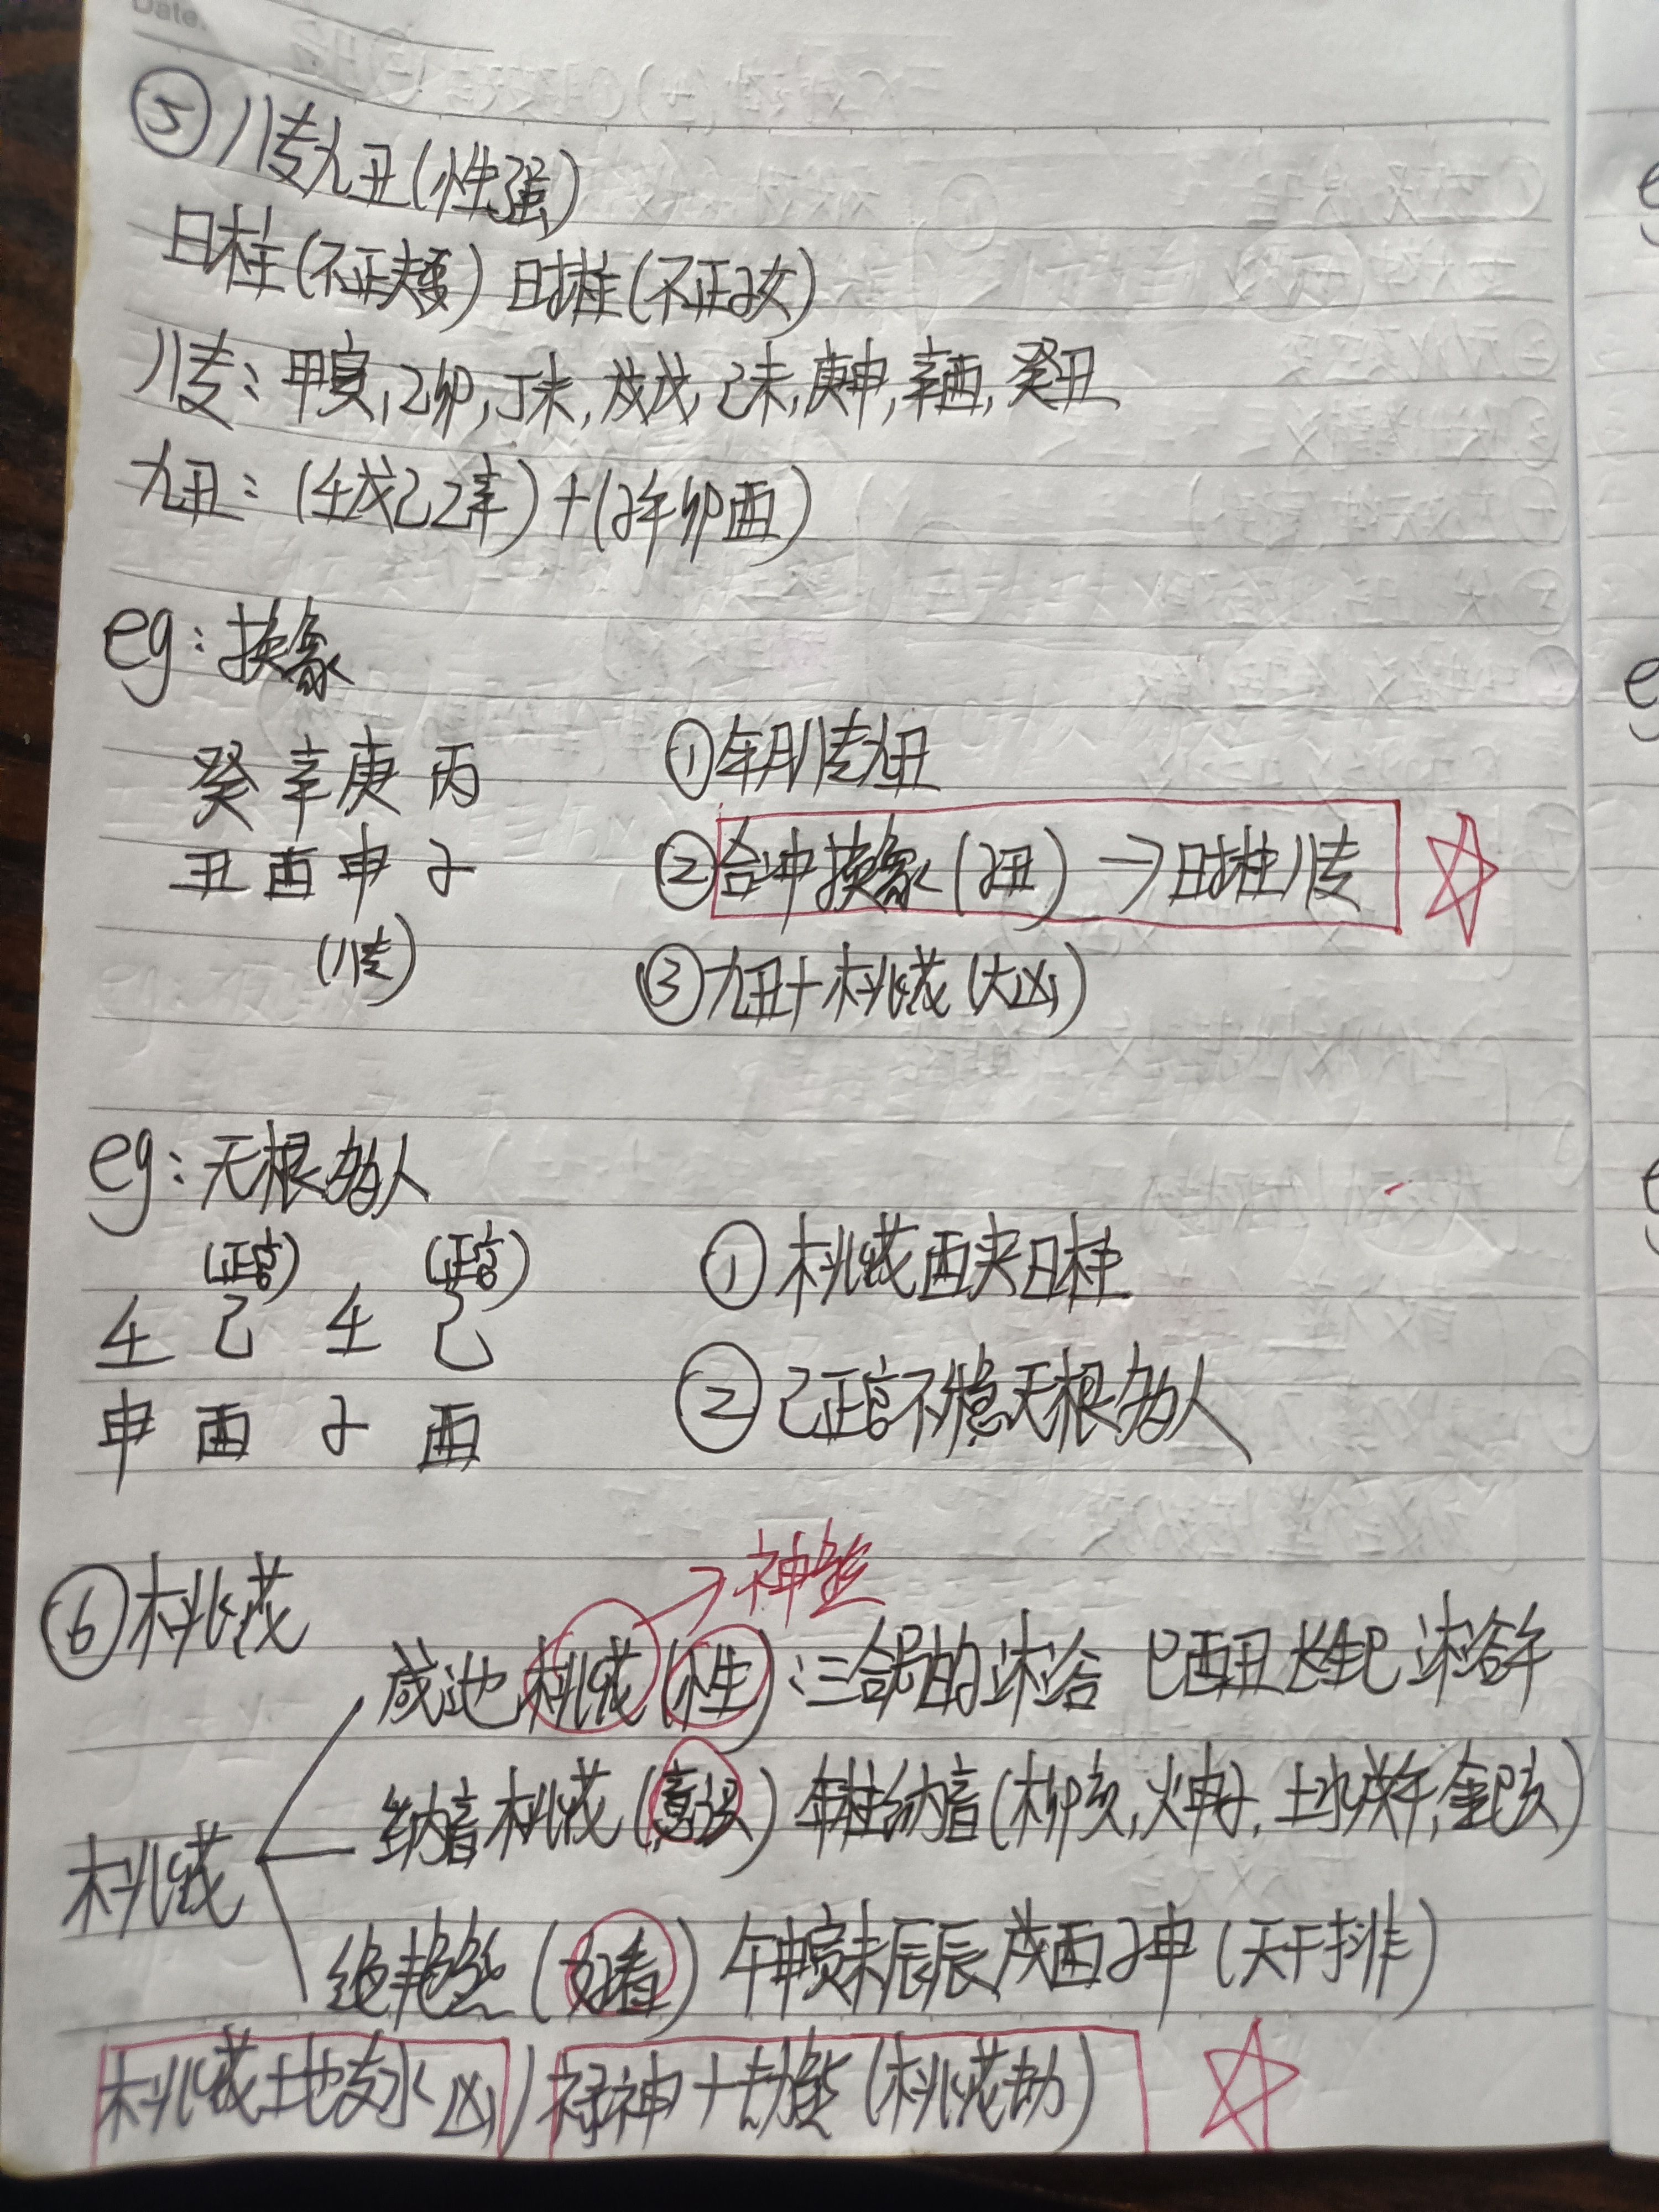 Date.
⑤八专九丑(性强)
日柱(不正夫妻) 时柱(不正子女)
八专:甲寅,乙卯,丁未,戊戌,己未,庚申,辛酉,癸丑
九丑:(壬戊己乙辛)+(子午卯酉)
eg:换象
癸 辛 庚 丙
丑 酉 申 子
(八专)
①年月八专九丑
②合冲换象(子丑)→时柱八专
③九丑+桃花(大凶)
eg:无根为人
(正官) (正官)
壬 己 壬 己
申 酉 子 酉
①桃花酉夹日柱
②己正官不稳无根为人
⑥桃花
→神煞
咸池桃花(性):三合局的沐浴 巳酉丑长生巳 沐浴午
桃花
纳音桃花(意淫) 年柱纳音(木卯亥,火申子,土水戌午,金巳亥)
绝艳煞(好看) 午申寅未辰辰戌酉子申(天干排)
桃花土地支水凶/禄神+劫煞(桃花劫)